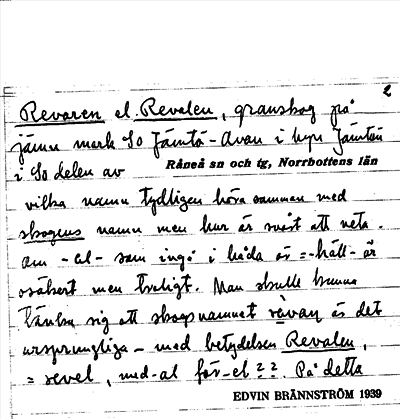 2
Revaren el. Revalen, granskog på
jämn mark SO Jämtö-Avan i byn Jämtön
i SO delen av Råneå sn och tg, Norrbottens län
vilka namn tydligen höra samman med
skogens namn men hur är svårt att veta.
Om -al- som ingå i båda är =-håll- är
osäkert men troligt. Man skulle kunna
tänka sig att skogsnamnet rävan är det
ursprungliga - med betydelsen Revalen,
= revel, med -al för -el ? ? På detta
EDVIN BRÄNNSTRÖM 1939